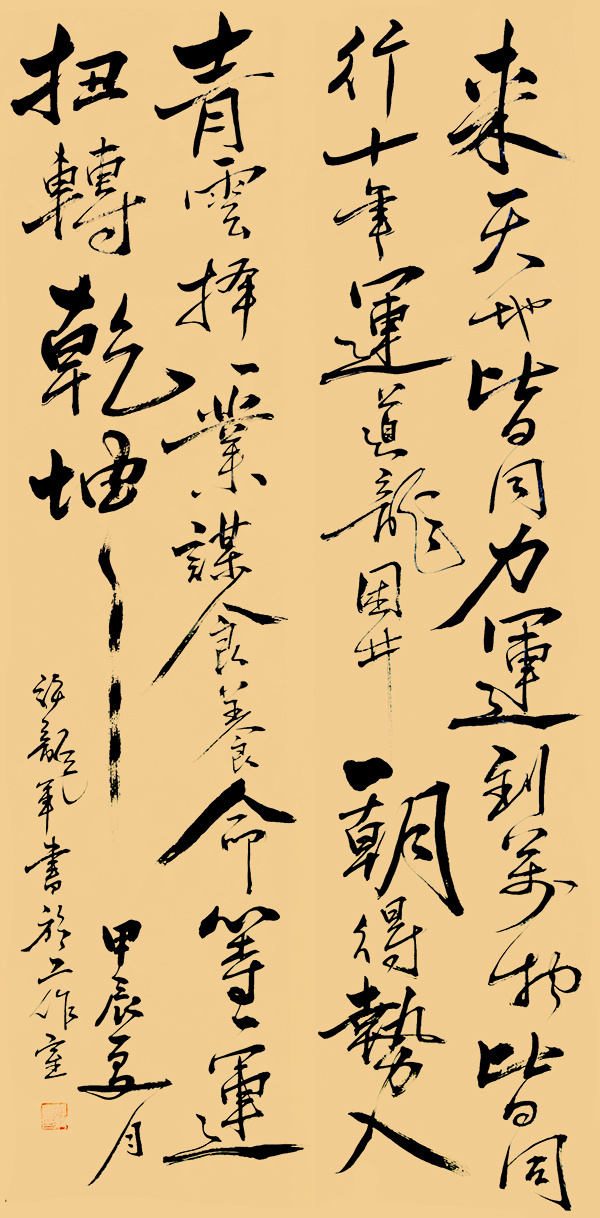 来天地皆同力運到萬物皆同
行十年運道龍困井一朝得勢入
青雲择一業謀食養命等一運
扭轉乾坤
甲辰夏月
許龍軍書於工作室